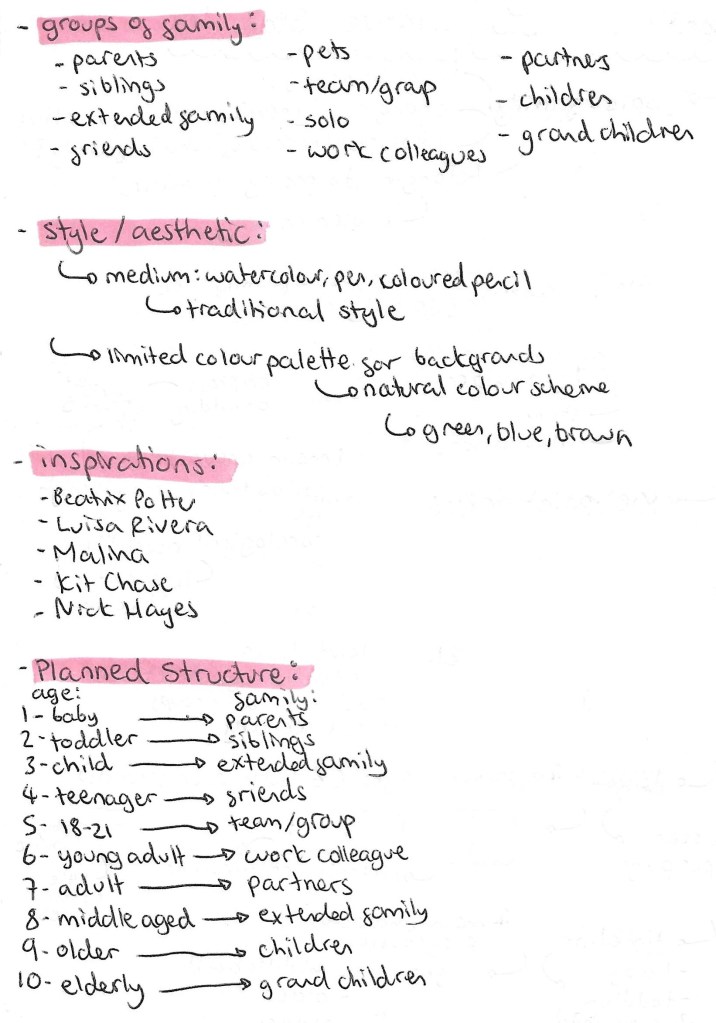 - groups of family:
- parents
- siblings
- extended family
- friends
- pets
- team/group
- solo
- work colleagues
- partners
- children
- grand children
- style/aesthetic:
↳ medium: watercolour, pen, coloured pencil
↳ traditional style
↳ limited colour palette for backgrounds
↳ natural colour scheme
↳ green, blue, brown
- inspirations:
- Beatrix Potter
- Luisa Rivera
- Malina
- Kit Chase
- Nick Hayes
- Planned Structure:
age: family:
1 - baby → parents
2 - toddler → siblings
3 - child → extended family
4 - teenager → friends
5 - 18-21 → team/group
6 - young adult → work colleague
7 - adult → partners
8 - middle aged → extended family
9 - older → children
10 - elderly → grand children